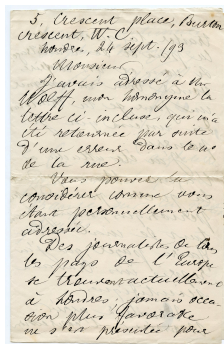 5, Crescent place, Burton
crescent, W.C
Londres, 24 sept. /93
Monsieur
J'avais adressé à Mr
Wolff, mon homonyme la
lettre ci-incluse, qui m'a
été retournée par suite
d'une erreur dans le no
de la rue.
Vous pouvez la
considérer comme vous
étant personnellement
adressée.
Des journalistes de tous
les pays de l'Europe
se trouvent actuellement
à Londres; jamais occa
sion plus favorable
ne s'est présentée pour